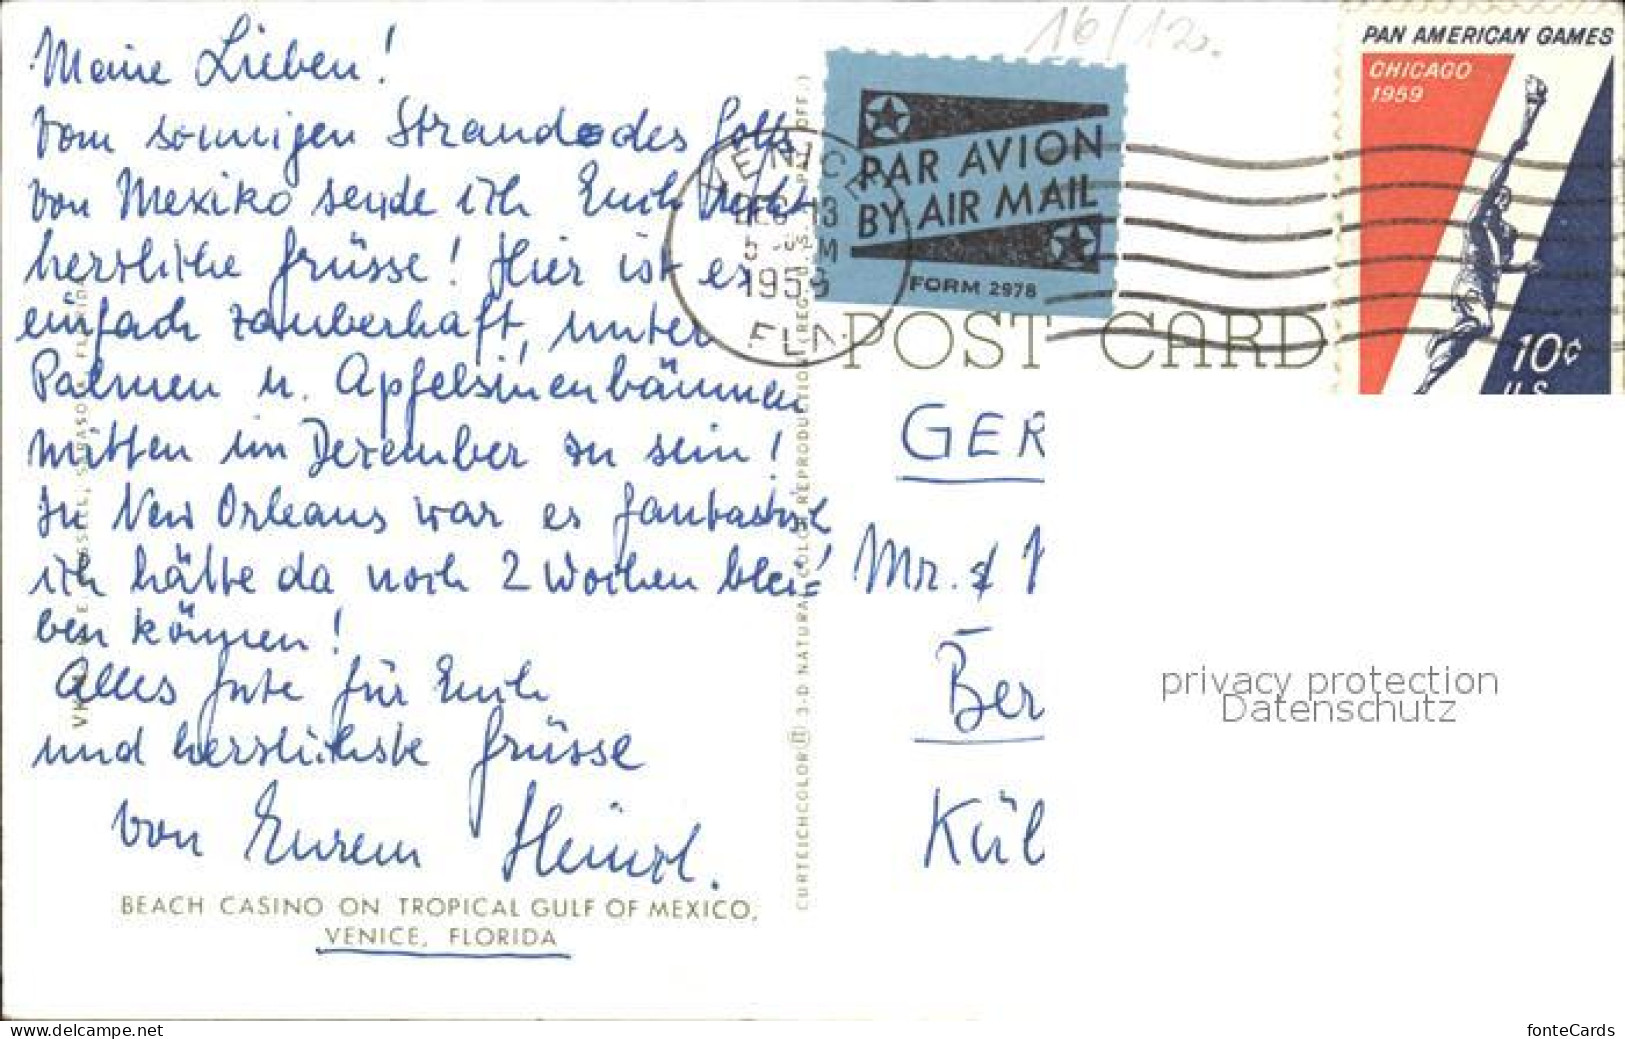 Meine Lieben!
Vom sonnigen Strande des Golfs
von Mexiko sende ich Euch recht
herzliche Grüsse! Hier ist es
einfach zauberhaft, unter
Palmen u. Apfelsinenbäumen
mitten im Dezember zu sein!
In New Orleans war es fantastisch
ich hätte da noch 2 Wochen blei=
ben können!
Alles Gute für Euch
und herzlichste Grüsse
von Eurem
BEACH CASINO ON TROPICAL GULF OF MEXICO,
VENICE, FLORIDA
CURTEICHCOLOR 3-D NATURAL COLOR REPRODUCTION (REG. U.S. PAT. OFF.)
16/12.
PAR AVION
BY AIR MAIL
FORM 2978
VENICE
DEC 13
1959
FLA
PAN AMERICAN GAMES
CHICAGO
1959
10¢
U.S.
POST CARD
GER
Mr. &
Ber
Kül
privacy protection
Datenschutz
www.delcampe.net
fonteCards